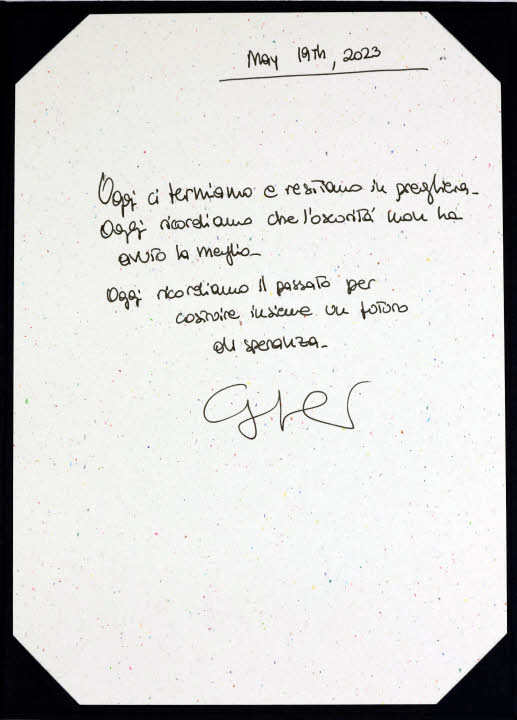 May 19th, 2023
Oggi ci fermiamo e restiamo in preghiera_
Oggi ricordiamo che l'oscurità non ha
avuto la meglio_
Oggi ricordiamo il passato per
costruire insieme un futuro
di speranza_